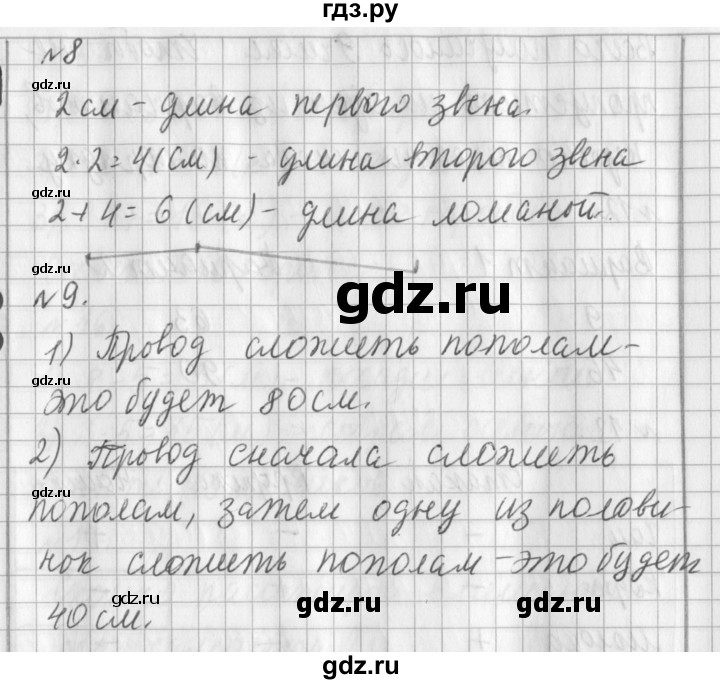 гдз.ру
№8
gdz.ru
2см - длина первого звена.
2·2=4(см) - длина второго звена
gdz.ru
2+4=6(см) - длина ломаной.
gdz.ru
gdz.ru
№9.
1) Провод сложить пополам-
gdz.ru
это будет 80см.
2) Провод сначала сложить
gdz.ru
пополам, затем одну из полови-
нок сложить пополам - это будет
40см.
gdz.ru
gdz.ru
gdz.ru
gdz.ru